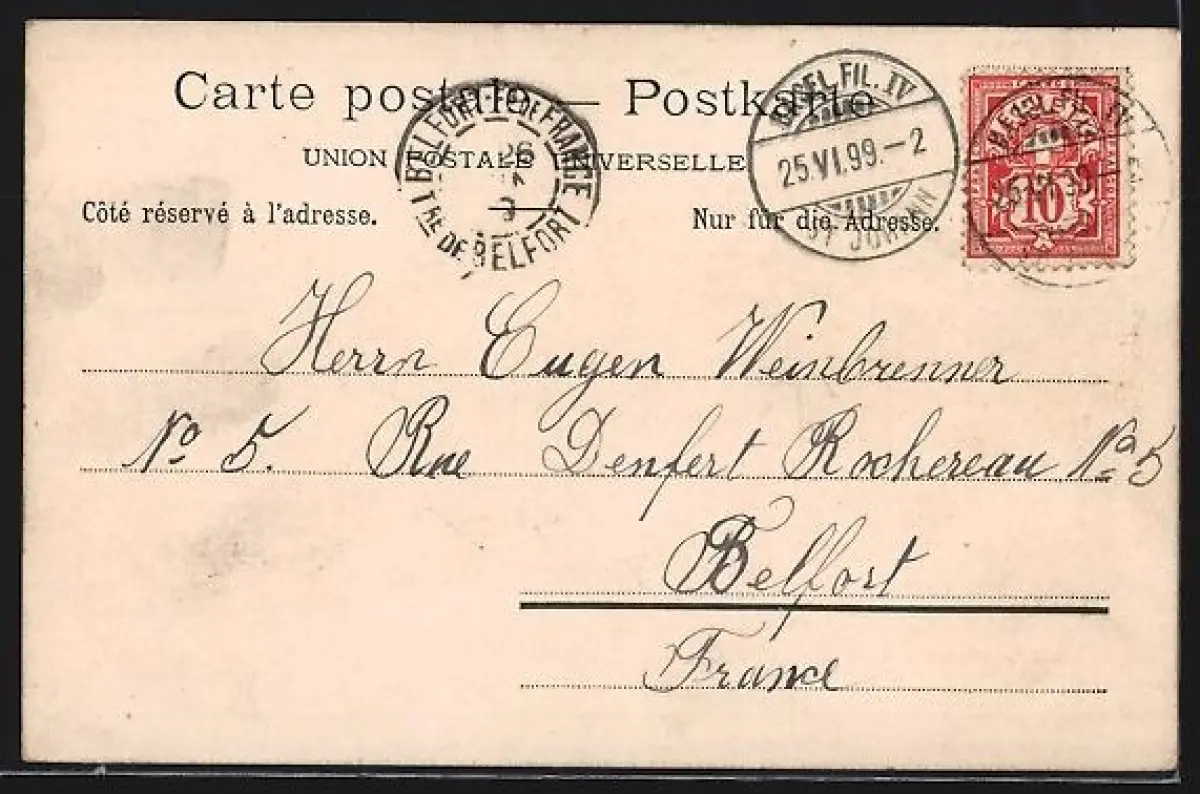 Carte postale — Postkarte
UNION POSTALE UNIVERSELLE
Côté réservé à l'adresse. Nur für die Adresse.
BELFORT TRE DE FRANCE
26
TRE DE BELFORT
BASEL FIL. IV
25.VI.99.–2
ST. JOHANN
10
Herrn Eugen Weinbrenner
No 5. Rue Denfert Rochereau No 5
Belfort
France